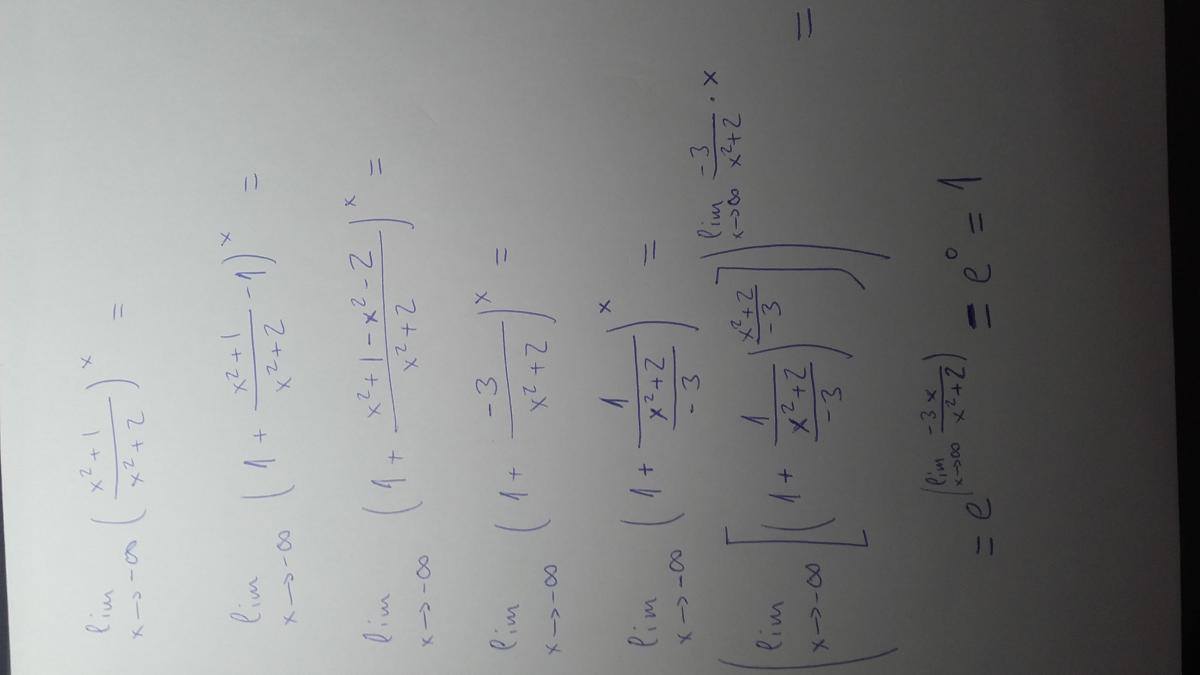 lim x→-∞ ( (x²+1)/(x²+2) )^x =
lim x→-∞ ( 1 + (x²+1)/(x²+2) - 1 )^x =
lim x→-∞ ( 1 + (x²+1-x²-2)/(x²+2) )^x =
lim x→-∞ ( 1 + (-3)/(x²+2) )^x =
lim x→-∞ ( 1 + 1/((x²+2)/(-3)) )^x =
( lim x→-∞ [ ( 1 + 1/((x²+2)/(-3)) )^((x²+2)/(-3)) ] )^(lim x→∞ (-3)/(x²+2) · x) =
= e^(lim x→∞ (-3x)/(x²+2)) = e^0 = 1